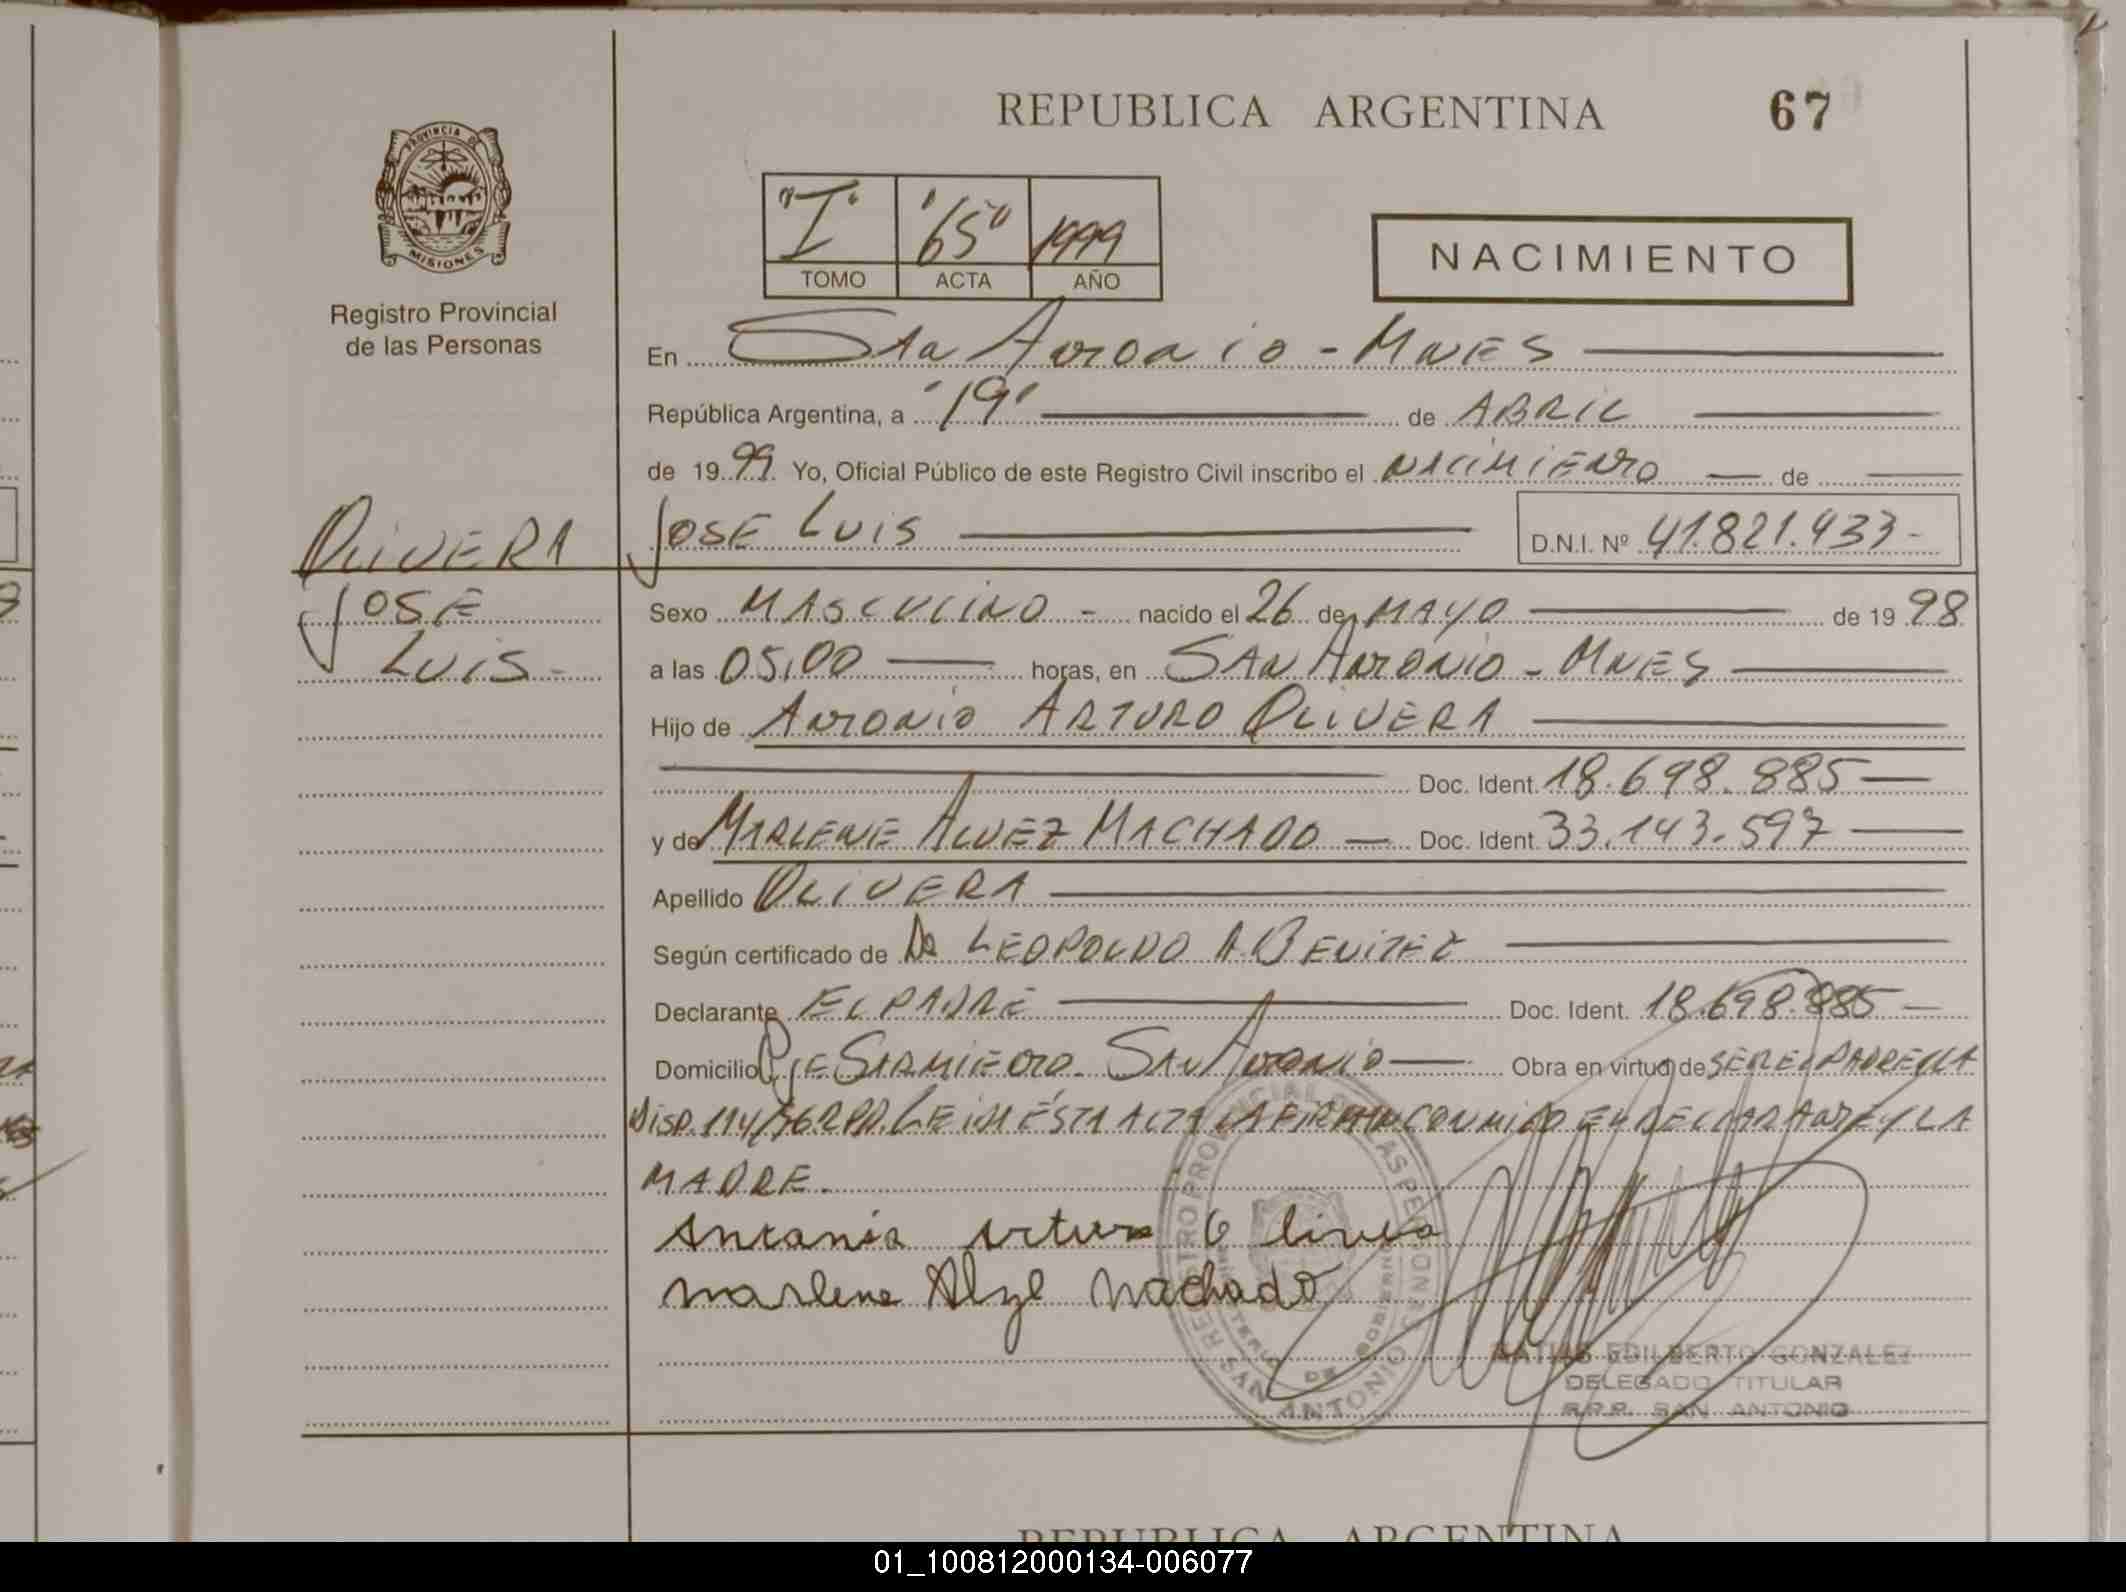 REPUBLICA ARGENTINA
67
PROVINCIA DE
MISIONES
Registro Provincial
de las Personas
"I" "65" 1999
TOMO ACTA AÑO
NACIMIENTO
En San Antonio - MNES
República Argentina, a "19" de ABRIL
de 1999 Yo, Oficial Público de este Registro Civil inscribo el NACIMIENTO de
OLIVERA JOSE LUIS D.N.I. Nº 41.821.933-
JOSE
LUIS-
Sexo MASCULINO - nacido el 26 de MAYO de 1998
a las 05,00 horas, en SAN ANTONIO - MNES
Hijo de ANTONIO ARTURO OLIVERA
Doc. Ident. 18.698.885
y de MARLENE ALVEZ MACHADO Doc. Ident. 33.143.597
Apellido OLIVERA
Según certificado de DR LEOPOLDO A. BENITEZ
Declarante EL PADRE Doc. Ident. 18.698.885
Domicilio PJE SARMIENTO. SAN ANTONIO Obra en virtud de SER EL PADRE
DISP. 114/96 RPP. LEIDA ÉSTA ACTA LA FIRMAN CONMIGO EL DECLARANTE Y LA
MADRE.
Antonio Artur Olivera
marlene Machado
REGISTRO PROVINCIAL DE LAS PERSONAS
MINISTERIO DE GOBIERNO
SAN ANTONIO
MATIAS EDILBERTO GONZALEZ
DELEGADO TITULAR
R.P.P. SAN ANTONIO
REPUBLICA ARGENTINA
01_100812000134-006077